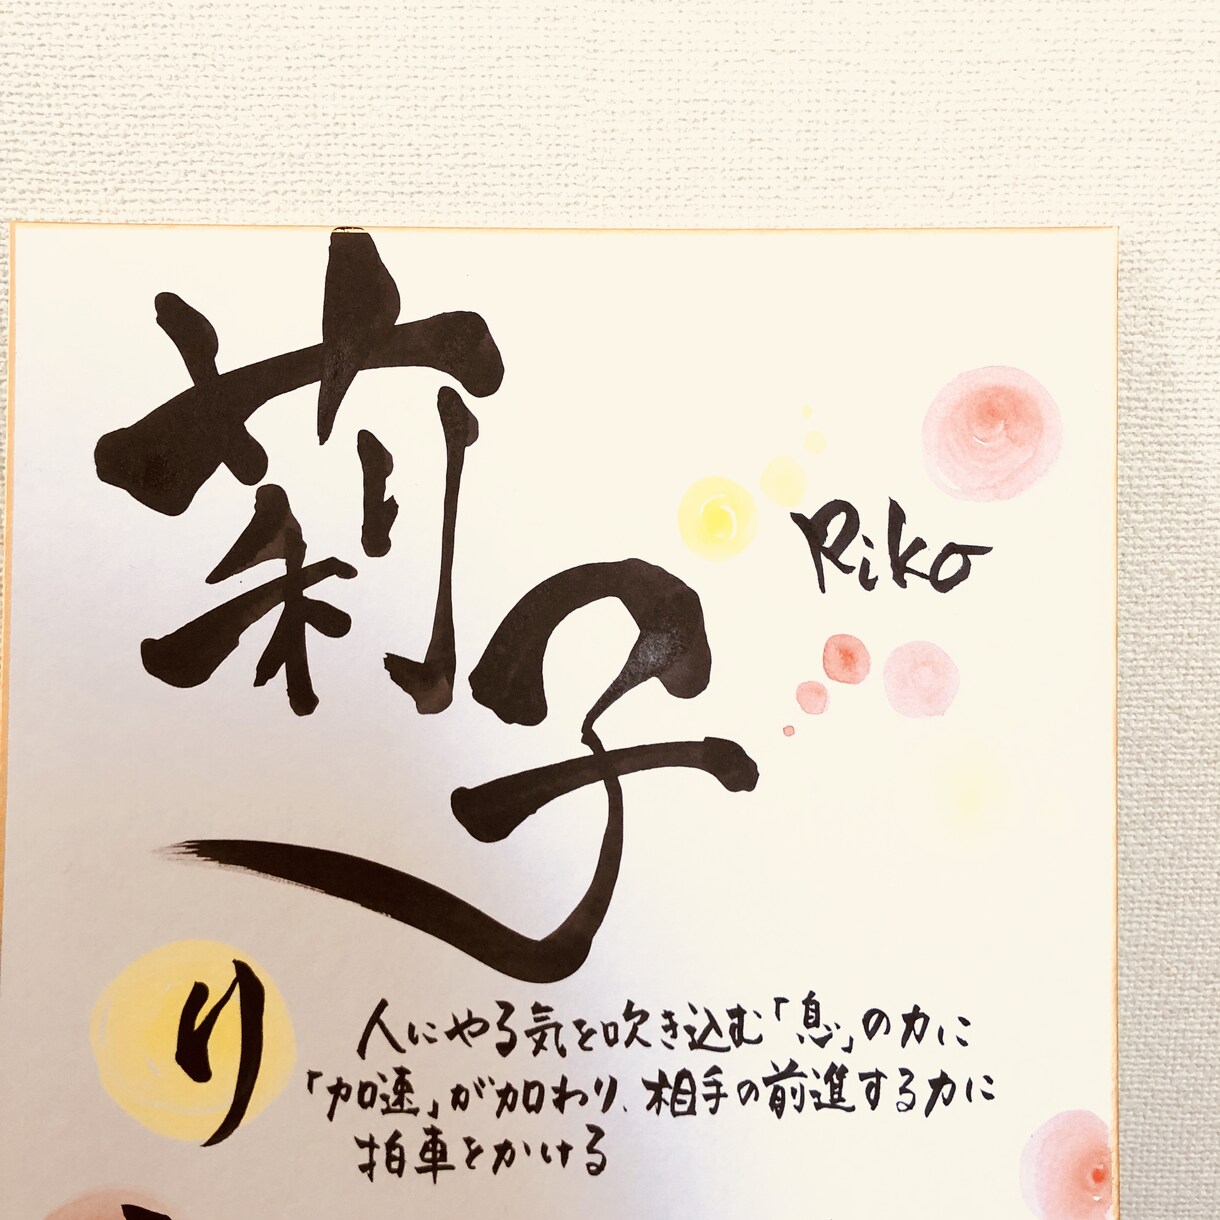 莉子
Riko
り
人にやる気を吹き込む「息」の力に
「加速」が加わり、相手の前進する力に
拍車をかける